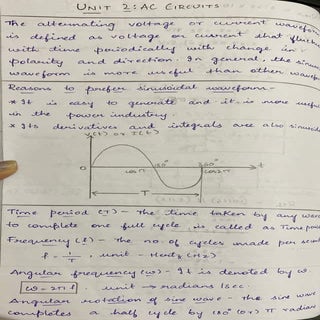 UNIT 2: AC CIRCUITS
The alternating voltage or current waveform
is defined as voltage or current that
with time periodically with change in
polarity and direction. In general, the
waveform is more useful than other
Reasons to prefer sinusoidal waveform:-
* It is easy to generate and it is more
in the power industry.
* Its derivatives and integrals are also
v(t) or i(t)
0
180°
360°
t
T
Time period (T) - The time taken by any
to complete one full cycle is called as
Frequency (f) - The no. of cycles made per
f = 1/T, unit - Hertz (Hz)
Angular frequency (ω) - It is denoted by ω.
ω = 2πf unit → radians/sec.
Angular rotation of sine wave - the sine wave
completes a half cycle by 180° (or) π